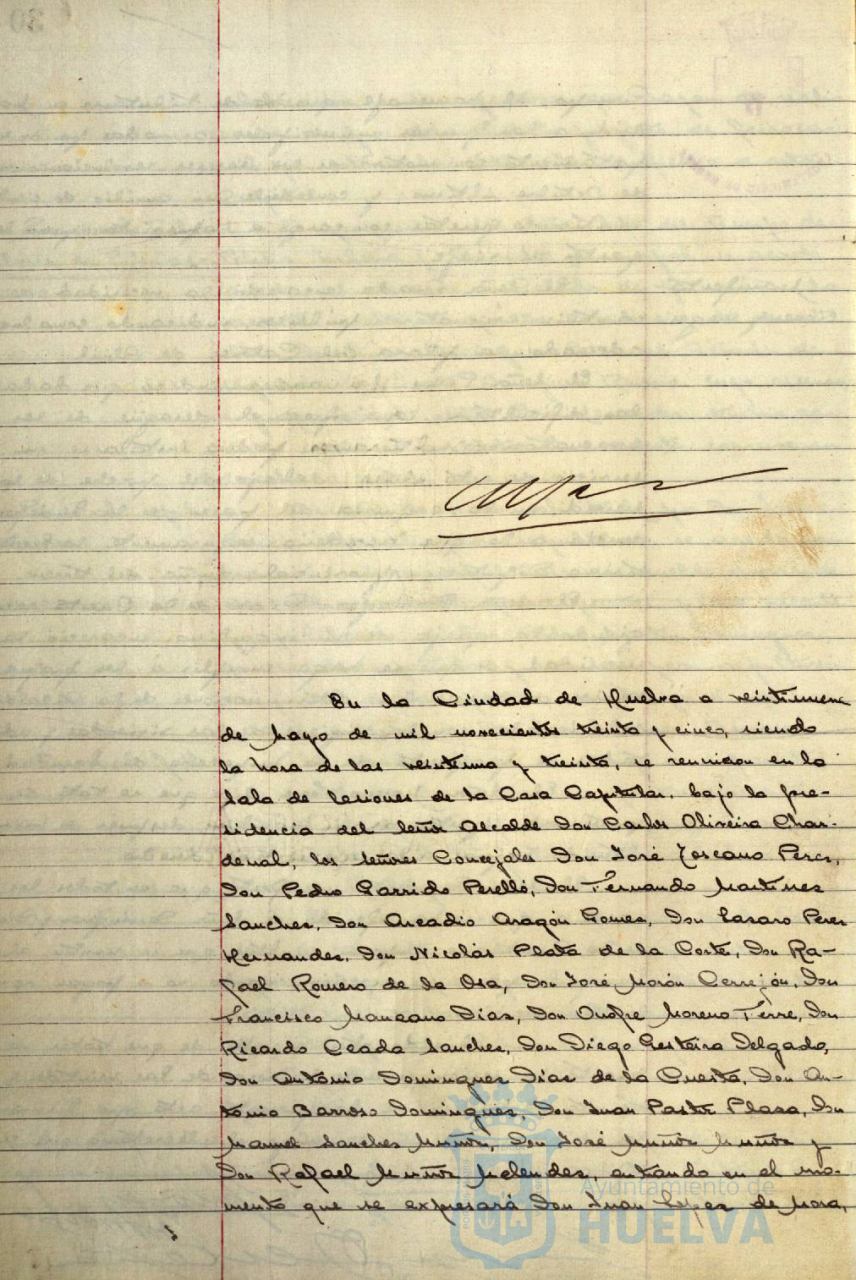 En la Ciudad de Huelva a veintinueve
de Mayo de mil novecientos treinta y cinco, siendo
la hora de las veintiuna y treinta, se reunieron en la
Sala de Sesiones de la Casa Capitular, bajo la pre-
sidencia del Señor Alcalde Don Carlos Oliveira Char-
denal, los Señores Concejales Don José Toscano Perez,
Don Pedro Garrido Perelló, Don Fernando Martinez
Sanchez, Don Arcadio Aragón Gomez, Don Lazaro Perez
Hernandez, Don Nicolás Plata de la Corte, Don Ra-
fael Romero de la Osa, Don José Morón Cerrejón, Don
Francisco Manzano Diaz, Don Onofre Moreno Terre, Don
Ricardo Ceada Sanchez, Don Diego Gesteira Delgado,
Don Antonio Dominguez Diaz de la Cuesta, Don An-
tonio Barroso Dominguez, Don Juan Pastor Plaza, Don
Manuel Sanchez Muñoz, Don José Muñoz Muñoz y
Don Rafael Muñoz Melendez, entrando en el mo-
mento que se expresará Don Juan Lopez de Mora,
Ayuntamiento de
HUELVA